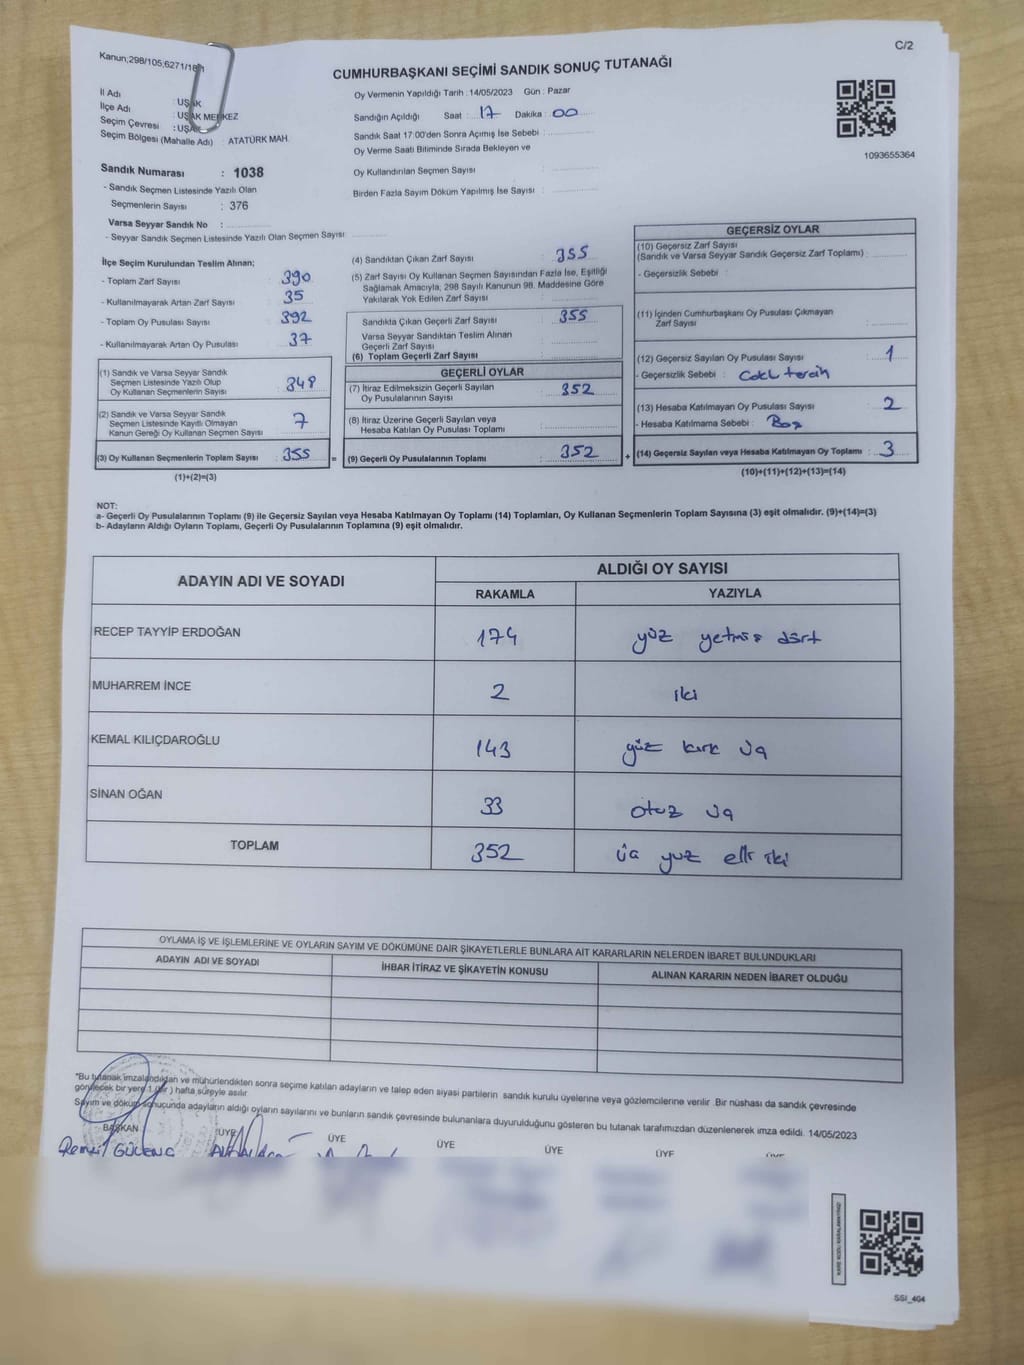 C/2
Kanun;298/105;6271/18/1
CUMHURBAŞKANI SEÇİMİ SANDIK SONUÇ TUTANAĞI
İl Adı : UŞAK
İlçe Adı : UŞAK MERKEZ
Seçim Çevresi : UŞAK
Seçim Bölgesi (Mahalle Adı) : ATATÜRK MAH.
Oy Vermenin Yapıldığı Tarih : 14/05/2023 Gün : Pazar
Sandığın Açıldığı Saat : 17 Dakika : 00
Sandık Saat 17:00'den Sonra Açılmış İse Sebebi :
Oy Verme Saati Bitiminde Sırada Bekleyen ve
Oy Kullandırılan Seçmen Sayısı :
Birden Fazla Sayım Döküm Yapılmış İse Sayısı :
1093655364
Sandık Numarası : 1038
- Sandık Seçmen Listesinde Yazılı Olan
Seçmenlerin Sayısı : 376
Varsa Seyyar Sandık No :
- Seyyar Sandık Seçmen Listesinde Yazılı Olan Seçmen Sayısı:
İlçe Seçim Kurulundan Teslim Alınan;
- Toplam Zarf Sayısı : 390
- Kullanılmayarak Artan Zarf Sayısı : 35
- Toplam Oy Pusulası Sayısı : 392
- Kullanılmayarak Artan Oy Pusulası : 37
(1) Sandık ve Varsa Seyyar Sandık
Seçmen Listesinde Yazılı Olup
Oy Kullanan Seçmenlerin Sayısı : 348
(2) Sandık ve Varsa Seyyar Sandık
Seçmen Listesinde Kayıtlı Olmayan
Kanun Gereği Oy Kullanan Seçmen Sayısı : 7
(3) Oy Kullanan Seçmenlerin Toplam Sayısı : 355
(1)+(2)=(3)
(4) Sandıktan Çıkan Zarf Sayısı : 355
(5) Zarf Sayısı Oy Kullanan Seçmen Sayısından Fazla İse, Eşitliği
Sağlamak Amacıyla; 298 Sayılı Kanunun 98. Maddesine Göre
Yakılarak Yok Edilen Zarf Sayısı :
Sandıkta Çıkan Geçerli Zarf Sayısı : 355
Varsa Seyyar Sandıktan Teslim Alınan
Geçerli Zarf Sayısı :
(6) Toplam Geçerli Zarf Sayısı :
GEÇERLİ OYLAR
(7) İtiraz Edilmeksizin Geçerli Sayılan
Oy Pusulalarının Sayısı : 352
(8) İtiraz Üzerine Geçerli Sayılan veya
Hesaba Katılan Oy Pusulası Toplamı :
= (9) Geçerli Oy Pusulalarının Toplamı : 352
GEÇERSİZ OYLAR
(10) Geçersiz Zarf Sayısı
(Sandık ve Varsa Seyyar Sandık Geçersiz Zarf Toplamı) :
- Geçersizlik Sebebi :
(11) İçinden Cumhurbaşkanı Oy Pusulası Çıkmayan
Zarf Sayısı :
(12) Geçersiz Sayılan Oy Pusulası Sayısı : 1
- Geçersizlik Sebebi : Çoklu tercih
(13) Hesaba Katılmayan Oy Pusulası Sayısı : 2
- Hesaba Katılmama Sebebi : Boş
+ (14) Geçersiz Sayılan veya Hesaba Katılmayan Oy Toplamı : 3
(10)+(11)+(12)+(13)=(14)
NOT:
a- Geçerli Oy Pusulalarının Toplamı (9) ile Geçersiz Sayılan veya Hesaba Katılmayan Oy Toplamı (14) Toplamları, Oy Kullanan Seçmenlerin Toplam Sayısına (3) eşit olmalıdır. (9)+(14)=(3)
b- Adayların Aldığı Oyların Toplamı, Geçerli Oy Pusulalarının Toplamına (9) eşit olmalıdır.
ADAYIN ADI VE SOYADI
ALDIĞI OY SAYISI
RAKAMLA YAZIYLA
RECEP TAYYİP ERDOĞAN 174 yüz yetmiş dört
MUHARREM İNCE 2 iki
KEMAL KILIÇDAROĞLU 143 yüz kırk üç
SİNAN OĞAN 33 otuz üç
TOPLAM 352 üç yüz elli iki
OYLAMA İŞ VE İŞLEMLERİNE VE OYLARIN SAYIM VE DÖKÜMÜNE DAİR ŞİKAYETLERLE BUNLARA AİT KARARLARIN NELERDEN İBARET BULUNDUKLARI
ADAYIN ADI VE SOYADI İHBAR İTİRAZ VE ŞİKAYETİN KONUSU ALINAN KARARIN NEDEN İBARET OLDUĞU
*Bu tutanak imzalandıktan ve mühürlendikten sonra seçime katılan adayların ve talep eden siyasi partilerin sandık kurulu üyelerine veya gözlemcilerine verilir. Bir nüshası da sandık çevresinde
görülecek bir yere 1 (bir) hafta süreyle asılır.
Sayım ve döküm sonuçunda adayların aldığı oyların sayılarını ve bunların sandık çevresinde bulunanlara duyurulduğunu gösteren bu tutanak tarafımızdan düzenlenerek imza edildi. 14/05/2023
BAŞKAN ÜYE ÜYE ÜYE ÜYE ÜYE ÜYE
SSI_404